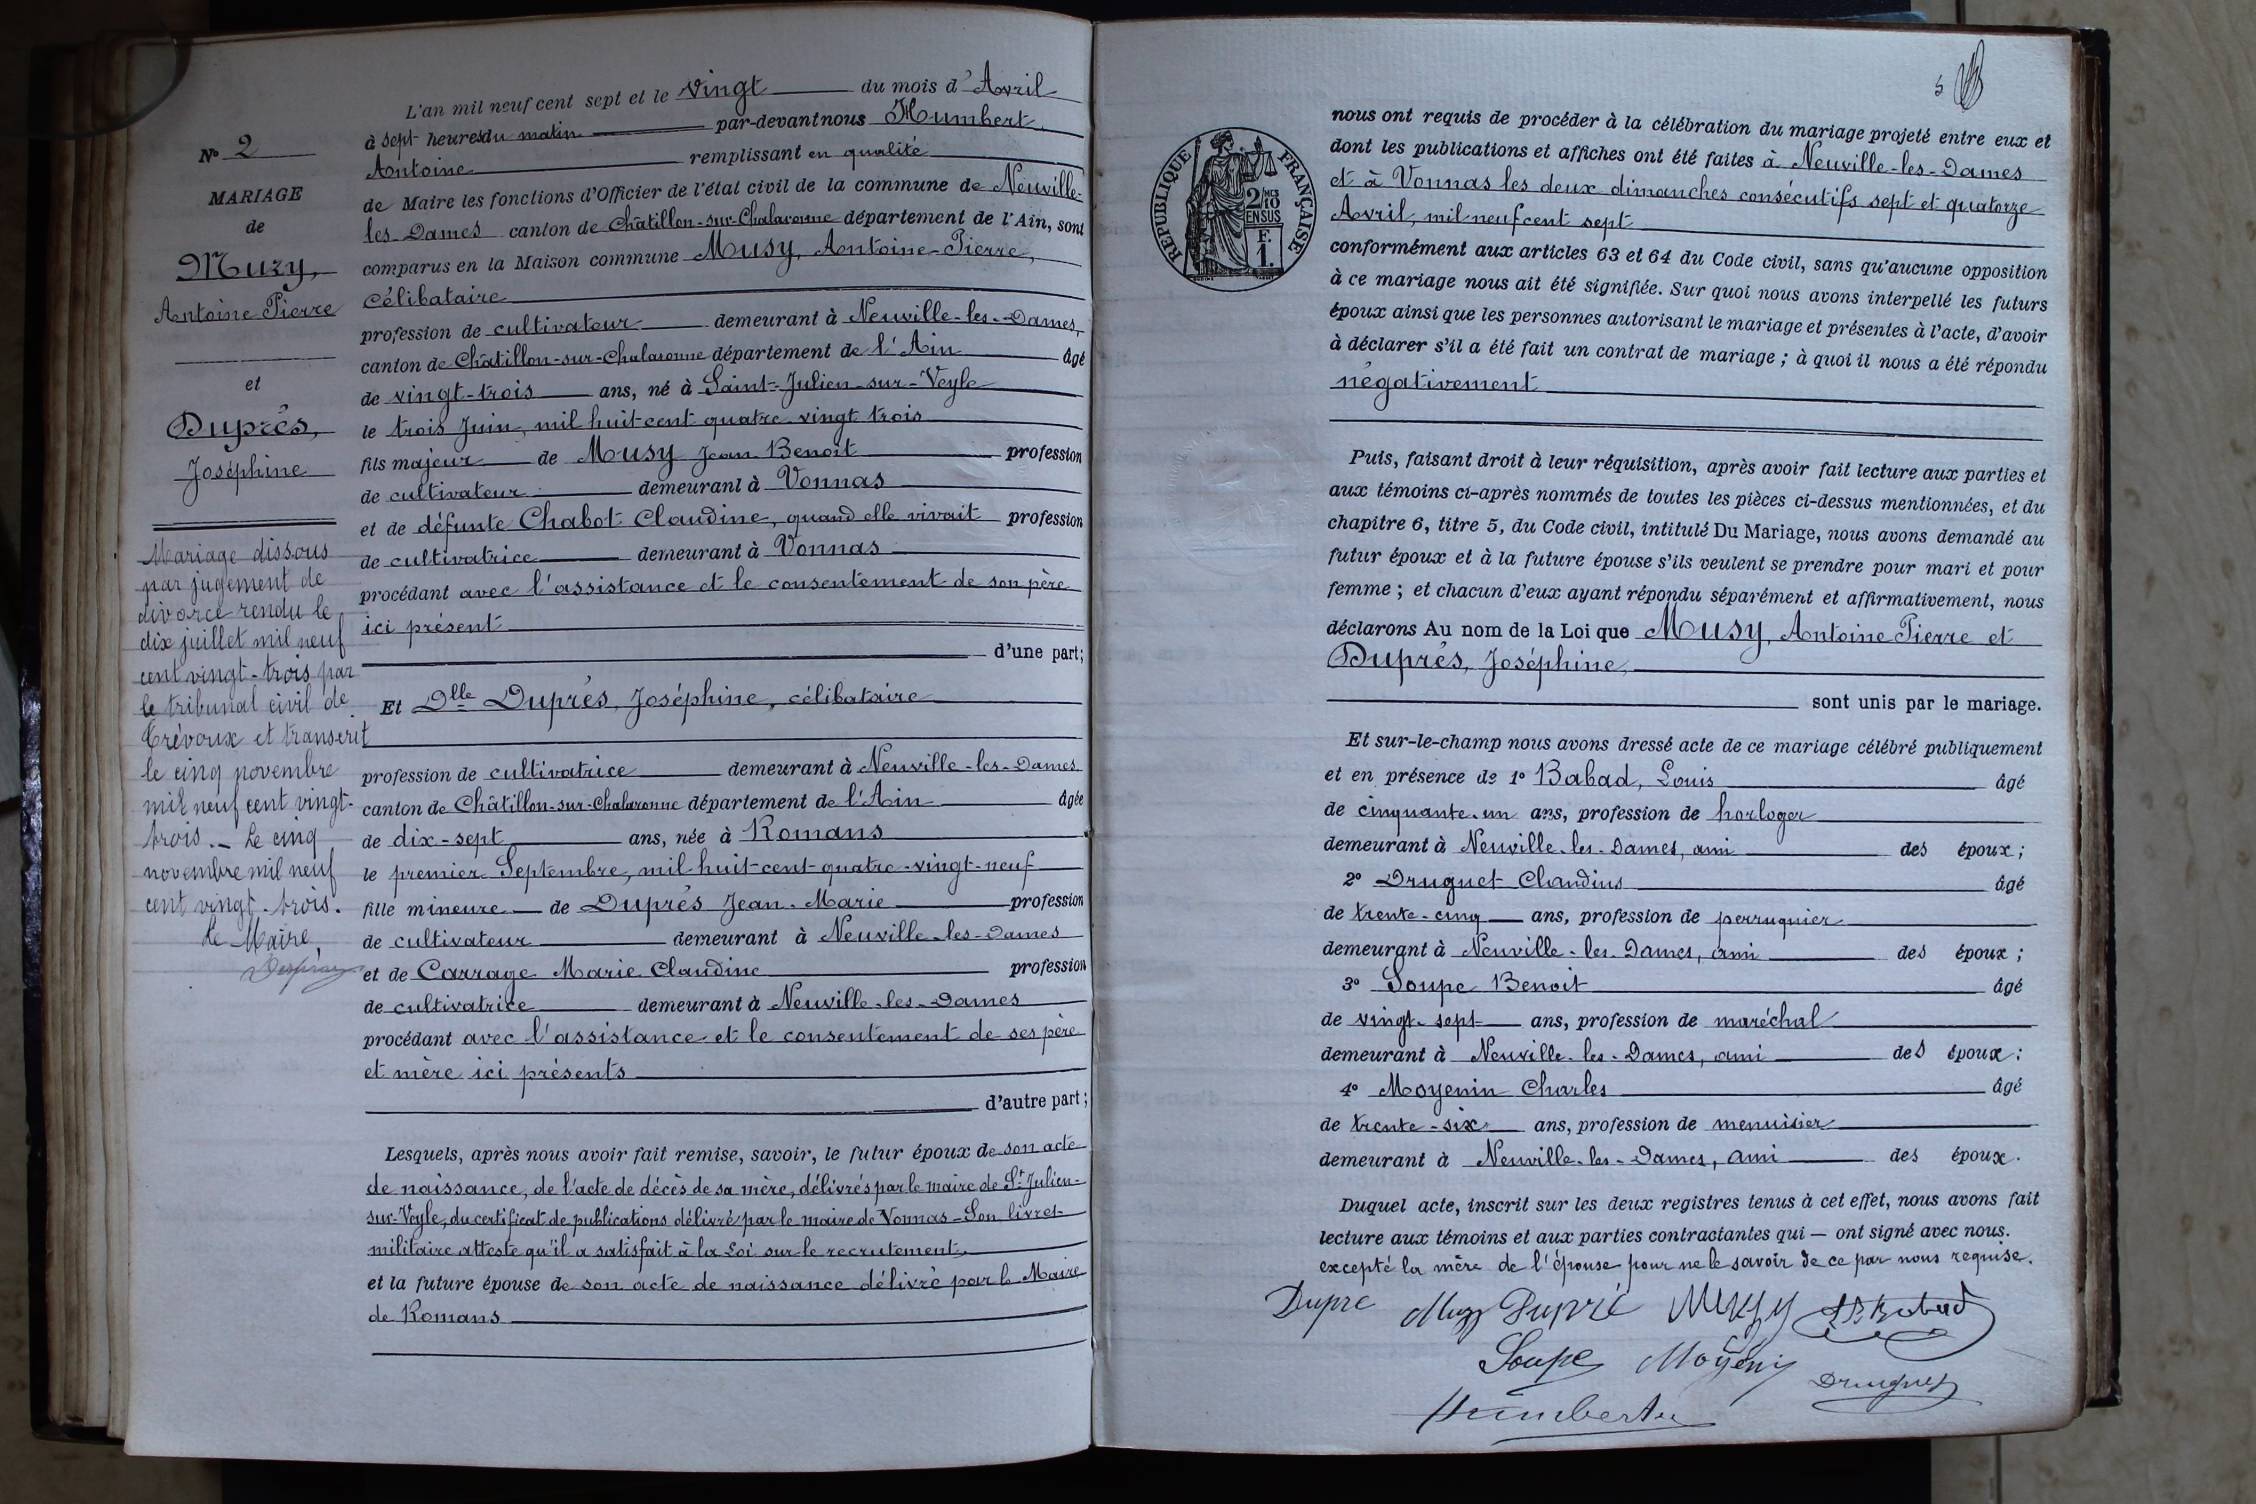 N° 2
MARIAGE
de
Muzy,
Antoine Pierre
et
Duprès,
Joséphine
Mariage dissous
par jugement de
divorce rendu le
dix juillet mil neuf
cent vingt-trois par
le tribunal civil de
Trévoux et transcrit
le cinq novembre
mil neuf cent vingt-
trois. - Le cinq
novembre mil neuf
cent vingt-trois.
Le Maire,
L'an mil neuf cent sept et le vingt du mois d'Avril
à sept heures du matin par-devant nous Humbert
Antoine remplissant en qualité
de Maire les fonctions d'Officier de l'état civil de la commune de Neuville-
les Dames canton de Châtillon-sur-Chalaronne département de l'Ain, sont
comparus en la Maison commune Musy, Antoine-Pierre,
célibataire
profession de cultivateur demeurant à Neuville-les-Dames,
canton de Châtillon-sur-Chalaronne département de l'Ain âgé
de vingt-trois ans, né à Saint-Julien-sur-Veyle
le trois Juin, mil huit-cent quatre-vingt trois
fils majeur de Musy Jean Benoît profession
de cultivateur demeurant à Vonnas
et de défunte Chabot Claudine, quand elle vivait profession
de cultivatrice demeurant à Vonnas
procédant avec l'assistance et le consentement de son père
ici présent
d'une part;
Et Dlle Duprès, Joséphine, célibataire
profession de cultivatrice demeurant à Neuville-les-Dames
canton de Châtillon-sur-Chalaronne département de l'Ain âgée
de dix-sept ans, née à Romans
le premier Septembre, mil huit-cent-quatre-vingt-neuf
fille mineure de Duprès Jean-Marie profession
de cultivateur demeurant à Neuville-les-Dames
et de Carrage Marie Claudine profession
de cultivatrice demeurant à Neuville-les-Dames
procédant avec l'assistance et le consentement de ses père
et mère ici présents
d'autre part;
Lesquels, après nous avoir fait remise, savoir, le futur époux de son acte
de naissance, de l'acte de décès de sa mère, délivrés par le maire de St Julien-
sur-Veyle, du certificat de publications délivré par le maire de Vonnas - Son livret
militaire atteste qu'il a satisfait à la Loi sur le recrutement,
et la future épouse de son acte de naissance délivré par le Maire
de Romans
5
RÉPUBLIQUE FRANÇAISE
2/10 MES
EN SUS
F.
1.
nous ont requis de procéder à la célébration du mariage projeté entre eux et
dont les publications et affiches ont été faites à Neuville-les-Dames
et à Vonnas les deux dimanches consécutifs sept et quatorze
Avril, mil-neuf cent sept
conformément aux articles 63 et 64 du Code civil, sans qu'aucune opposition
à ce mariage nous ait été signifiée. Sur quoi nous avons interpellé les futurs
époux ainsi que les personnes autorisant le mariage et présentes à l'acte, d'avoir
à déclarer s'il a été fait un contrat de mariage; à quoi il nous a été répondu
négativement
Puis, faisant droit à leur réquisition, après avoir fait lecture aux parties et
aux témoins ci-après nommés de toutes les pièces ci-dessus mentionnées, et du
chapitre 6, titre 5, du Code civil, intitulé Du Mariage, nous avons demandé au
futur époux et à la future épouse s'ils veulent se prendre pour mari et pour
femme; et chacun d'eux ayant répondu séparément et affirmativement, nous
déclarons Au nom de la Loi que Musy, Antoine Pierre et
Duprès, Joséphine,
sont unis par le mariage.
Et sur-le-champ nous avons dressé acte de ce mariage célébré publiquement
et en présence de 1° Babad, Louis âgé
de cinquante-un ans, profession de horloger
demeurant à Neuville-les-Dames, ami des époux;
2° Druguet Claudius âgé
de trente-cinq ans, profession de perruquier
demeurant à Neuville-les-Dames, ami des époux;
3° Soupe Benoit âgé
de vingt-sept ans, profession de maréchal
demeurant à Neuville-les-Dames, ami des époux;
4° Moyenin Charles âgé
de trente-six ans, profession de menuisier
demeurant à Neuville-les-Dames, ami des époux.
Duquel acte, inscrit sur les deux registres tenus à cet effet, nous avons fait
lecture aux témoins et aux parties contractantes qui — ont signé avec nous.
excepté la mère de l'épouse pour ne le savoir de ce par nous requise.
Dupre Muzy Dupré Musy Babad
Soupe Moyenin Druguet
Humbert